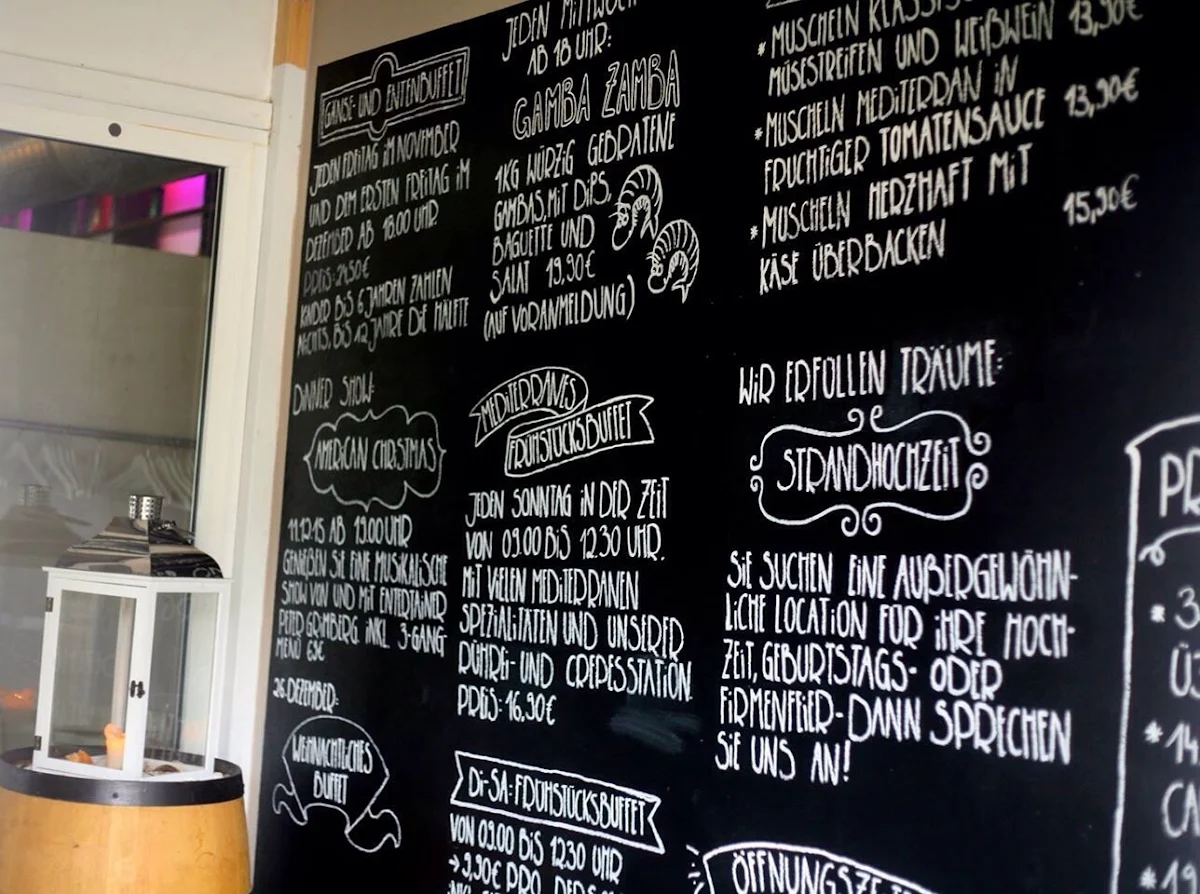 GÄNSE- UND ENTENBUFFET
JEDEN FREITAG IM NOVEMBER
UND DEM ERSTEN FREITAG IM
DEZEMBER AB 18.00 UHR
PREIS: 24,50€
KINDER BIS 6 JAHREN ZAHLEN
NICHTS, BIS 12 JAHRE DIE HÄLFTE
DINNER SHOW:
AMERICAN CHRISTMAS
11.12.15 AB 19.00 UHR
GENIEßEN SIE EINE MUSIKALISCHE
SHOW VON UND MIT ENTERTAINER
PETER GRIMBERG. INKL. 3-GANG-
MENÜ 69€
26. DEZEMBER:
WEIHNACHTLICHES
BUFFET
JEDEN MITTWOCH
AB 18 UHR:
GAMBA ZAMBA
1KG WÜRZIG GEBRATENE
GAMBAS, MIT DIPS,
BAGUETTE UND
SALAT 19,90€
(AUF VORANMELDUNG)
MEDITERRANES
FRÜHSTÜCKSBUFFET
JEDEN SONNTAG IN DER ZEIT
VON 09.00 BIS 12.30 UHR.
MIT VIELEN MEDITERRANEN
SPEZIALITÄTEN UND UNSERER
RÜHREI- UND CREPESSTATION.
PREIS: 16,90€
DI-SA: FRÜHSTÜCKSBUFFET
VON 09.00 BIS 12.30 UHR
→ 9,90€ PRO
* MUSCHELN
MÜSESTREIFEN UND WEIßWEIN 13,90€
* MUSCHELN MEDITERRAN IN
FRUCHTIGER TOMATENSAUCE 13,90€
* MUSCHELN HERZHAFT MIT
KÄSE ÜBERBACKEN 15,90€
WIR ERFÜLLEN TRÄUME:
STRANDHOCHZEIT
SIE SUCHEN EINE AUßERGEWÖHN-
LICHE LOCATION FÜR IHRE HOCH-
ZEIT, GEBURTSTAGS- ODER
FIRMENFEIER - DANN SPRECHEN
SIE UNS AN!
PR
* 3
* 14
CA